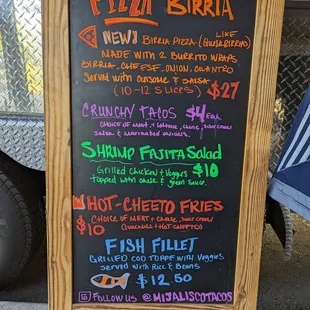 PIZZA BIRRIA
NEW! BIRRIA PIZZA LIKE
MADE WITH 2 BURRITO WRAPS
BIRRIA, CHEESE, ONION, CILANTRO
SERVED WITH CONSOME & SALSA
(10-12 SLICES) $27
CRUNCHY TACOS $4 EA.
CHOICE OF MEAT + LETTUCE, CHEESE, SOUR CREAM
SALSA & MARINATED ONIONS.
SHRIMP FAJITA SALAD
GRILLED CHICKEN & VEGGIES $10
TOPPED WITH & GREEN SAUCE.
HOT-CHEETO FRIES
CHOICE OF MEAT + CHEESE, SOUR CREAM
$10 & HOT CHEETOS
FISH FILLET
GRILLED COD TOPPED WITH VEGGIES
SERVED WITH RICE & BEANS
$12.50
FOLLOW US @MIJALISCOTACOS